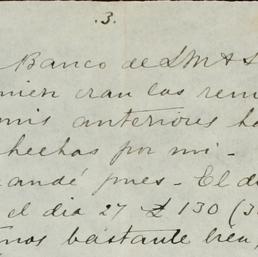 .3.
Banco de L M & S
mien eran las rem
mis anteriores ha
hechas por mi -
andé pues - El d
el dia 27 £ 130 (3
mos bastante bien,